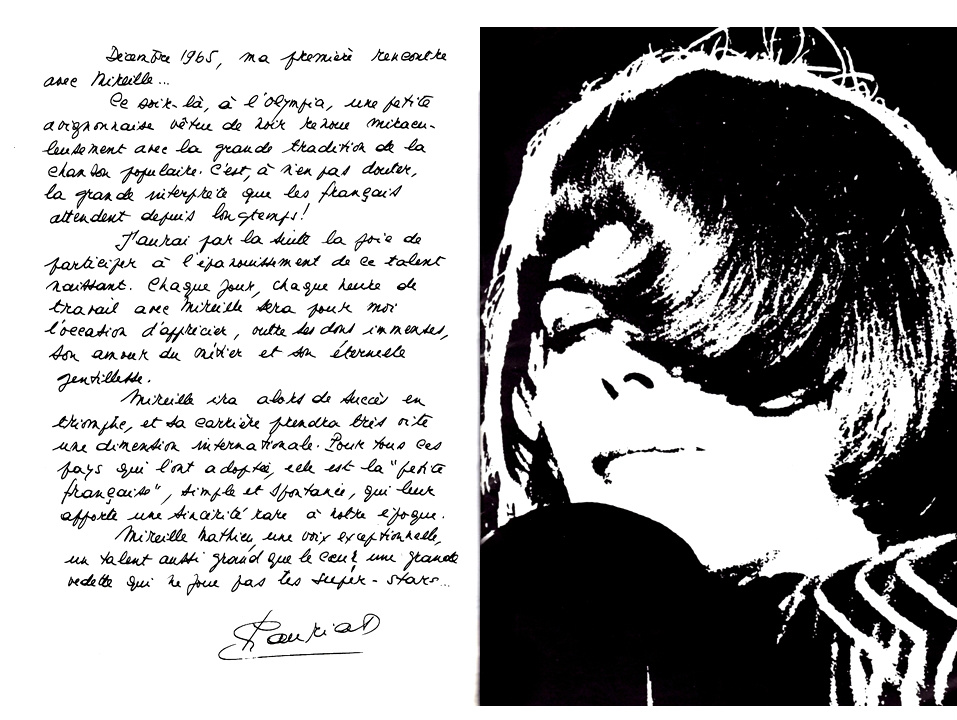 Décembre 1965, ma première rencontre
avec Mireille...
Ce soir-là, à l'Olympia, une petite
avignonnaise vêtue de noir renoue miracu-
leusement avec la grande tradition de la
chanson populaire. C'est, à n'en pas douter,
la grande interprète que les français
attendent depuis longtemps!
J'aurai par la suite la joie de
participer à l'épanouissement de ce talent
naissant. Chaque jour, chaque heure de
travail avec Mireille sera pour moi
l'occasion d'apprécier, outre ses dons immenses,
son amour du métier et son éternelle
gentillesse.
Mireille ira alors de succès en
triomphe, et sa carrière prendra très vite
une dimension internationale. Pour tous ces
pays qui l'ont adoptée, elle est la "petite
française", simple et spontanée, qui leur
apporte une sincérité rare à notre époque.
Mireille Mathieu, une voix exceptionnelle,
un talent aussi grand que le cœur, une grande
vedette qui ne joue pas les super-stars...
Pauriat